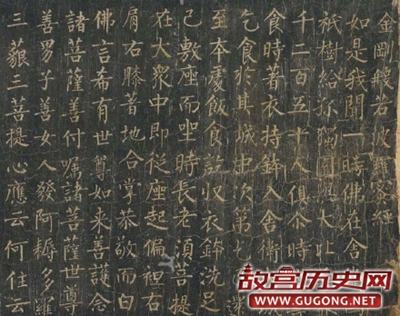 金剛般若波羅蜜經
如是我聞一時佛在舍
祇樹給孤獨園與大比
千二百五十人俱尒時
食時著衣持鉢入舍衛
乞食於其城中次第還
至本處飯食訖收衣鉢洗足
已敷座而坐時長老湏菩提
在大衆中即從座起偏袒右
肩右膝著地合掌恭敬而白
佛言希有世尊如來善護念
諸菩薩善付囑諸菩薩世尊
善男子善女人發阿耨多羅
三藐三菩提心應云何住云
故宫历史网
WWW.GUGONG.NET